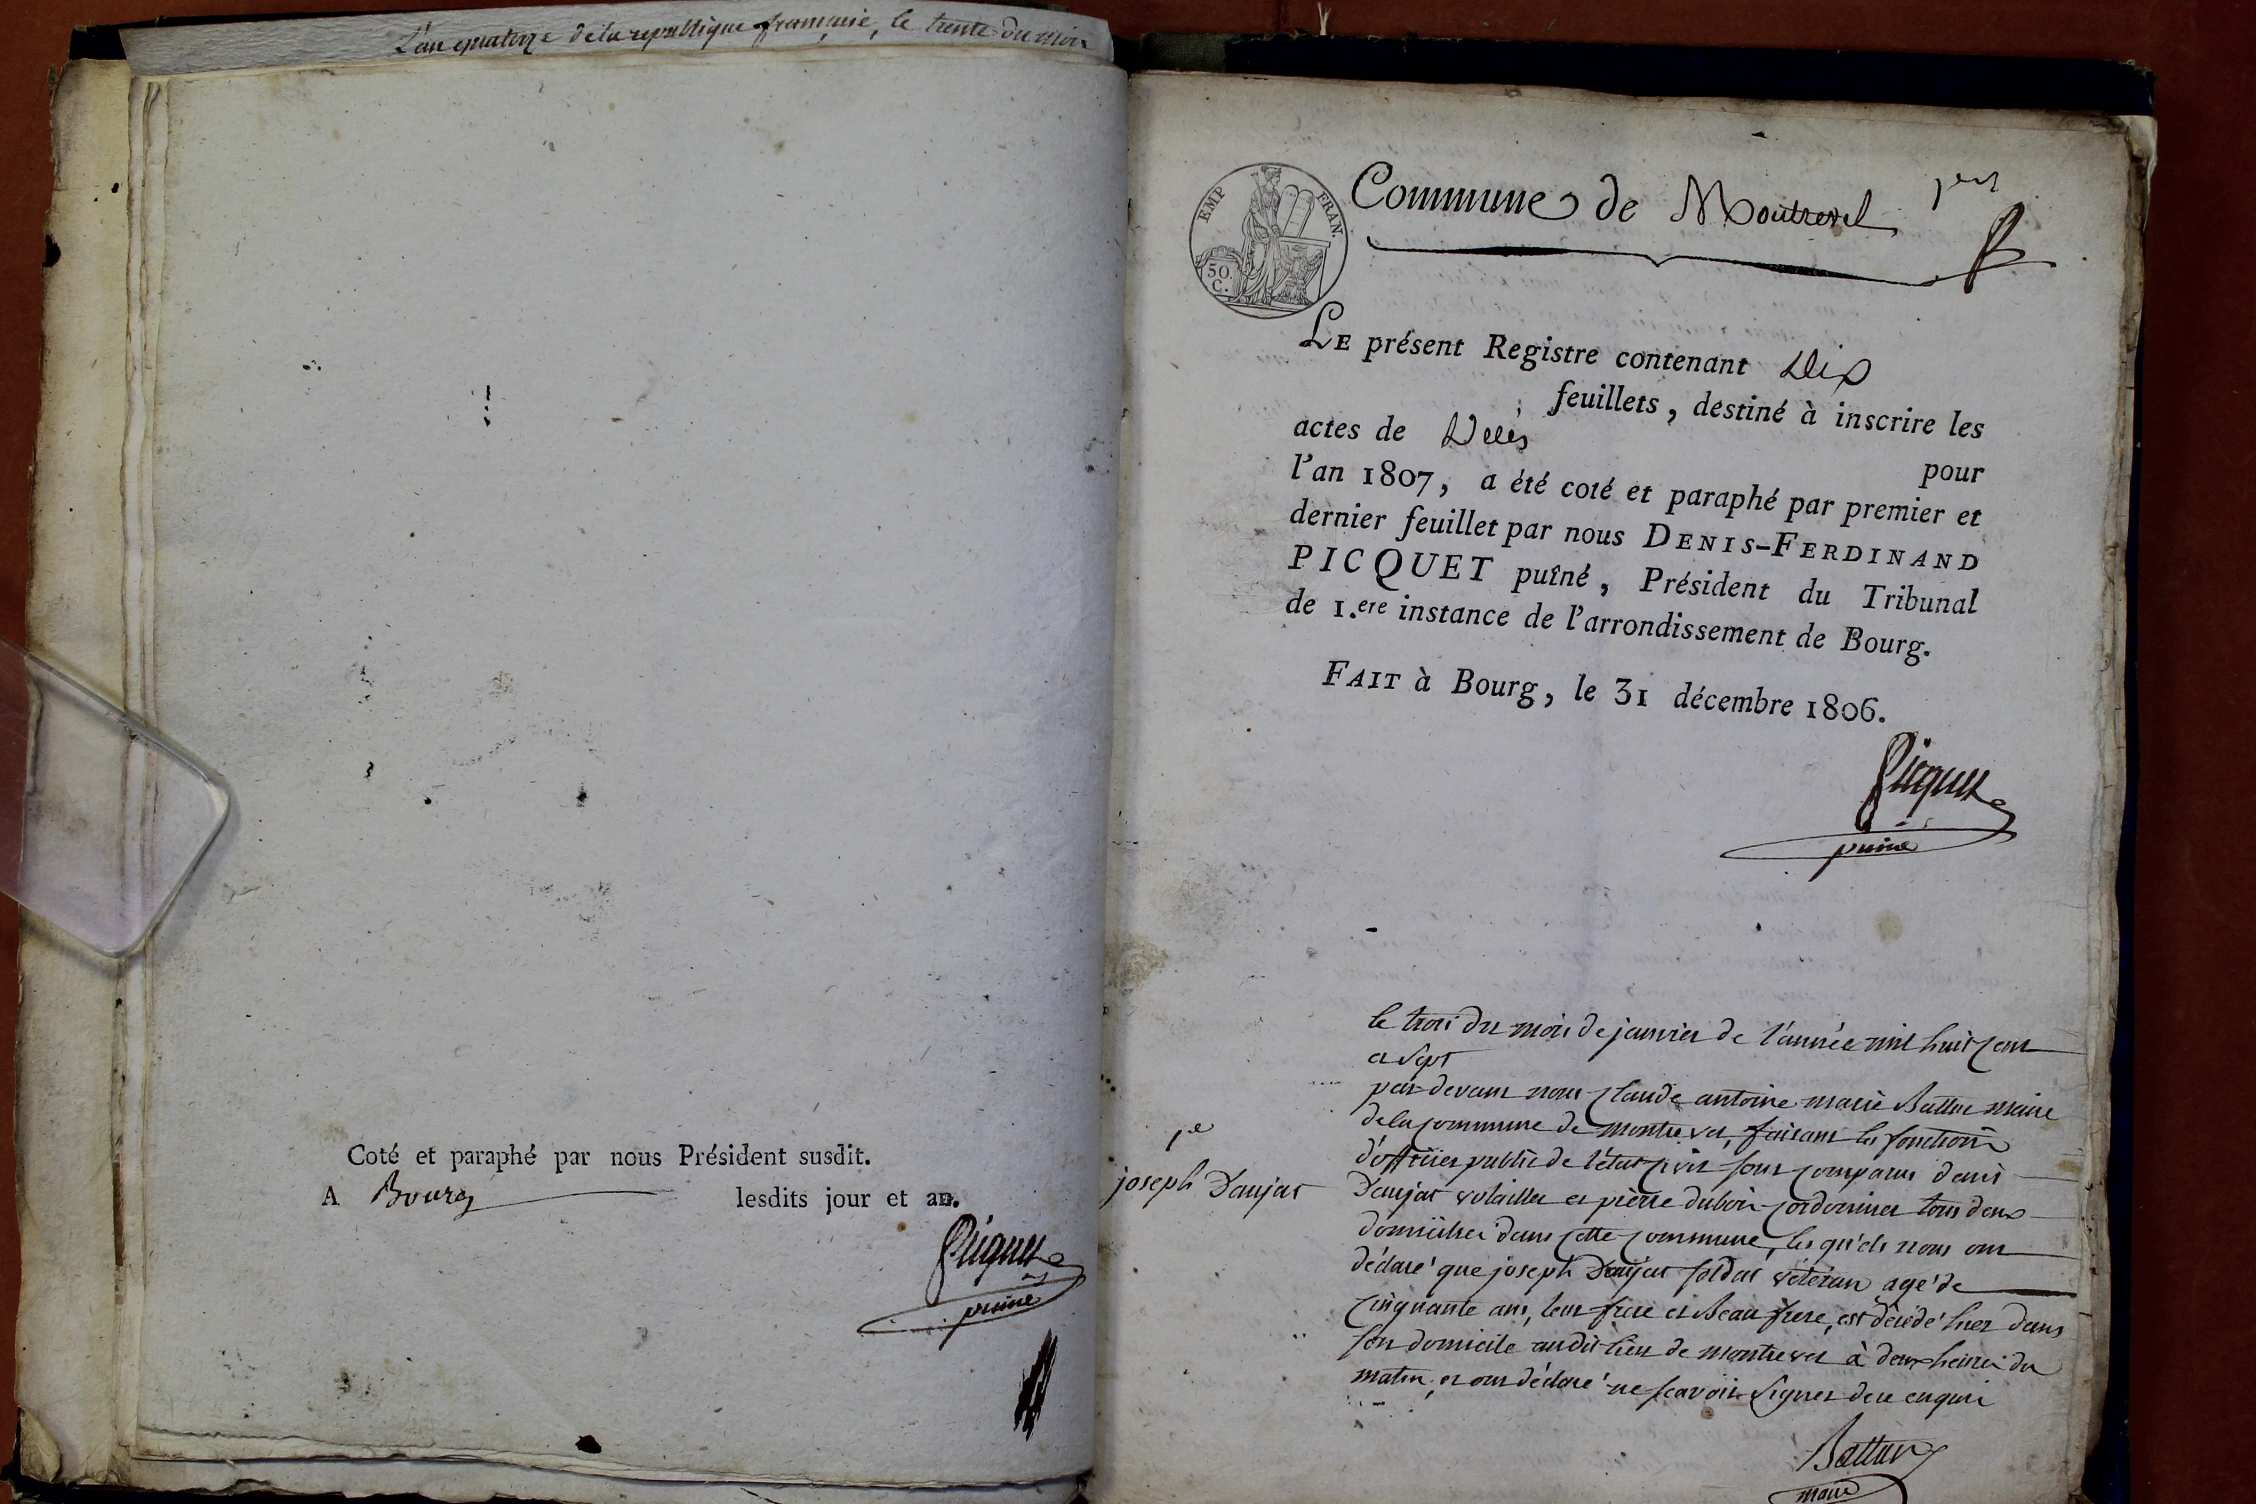 L'an quatorze de la republique francaise, le trente du mois
Coté et paraphé par nous Président susdit.
A Bourg lesdits jour et an.
Picquet
puiné
EMP FRAN.
50.
C.
Commune de Montrevel
1er
LE présent Registre contenant Dix
feuillets, destiné à inscrire les
actes de Décès
pour
l'an 1807, a été coté et paraphé par premier et
dernier feuillet par nous DENIS-FERDINAND
PICQUET puîné, Président du Tribunal
de 1.ere instance de l'arrondissement de Bourg.
FAIT à Bourg, le 31 décembre 1806.
Picquet
puiné
1e
joseph Daujat
le trois du mois de janvier de l'année mil huit cent
et sept
par devant nous Claude antoine marie Battur maire
de la commune de montrevel, faisant les fonctions
d'officier public de l'état civil sont comparus denis
Daujat volailler et pierre dubois cordonnier tous deux
domiciliés dans cette commune, lesquels nous ont
déclaré que joseph Daujat soldat vétéran agé de
cinquante ans, leur frere et beau frere, est décédé hier dans
son domicile audit lieu de montrevel à deux heures du
matin, et ont déclaré ne scavoir signer de ce enquis
Battur
maire